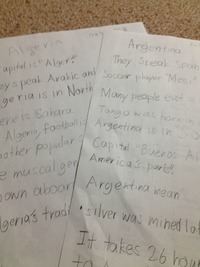 Algeria
apital is "Alger"
ey speak Arabic and
geria is in North
ere is Sahara
Algeria, football is
other popular
e muscal gen
own aboar
lgeria's tradi
Argentina
They speak span
Soccer player "Messi"
Many people eat
Tango was born in
Argentina is in
Capital "Buenos Ai
America's part
Argentina mean
• silver was mined lat
It takes 26 hour
to